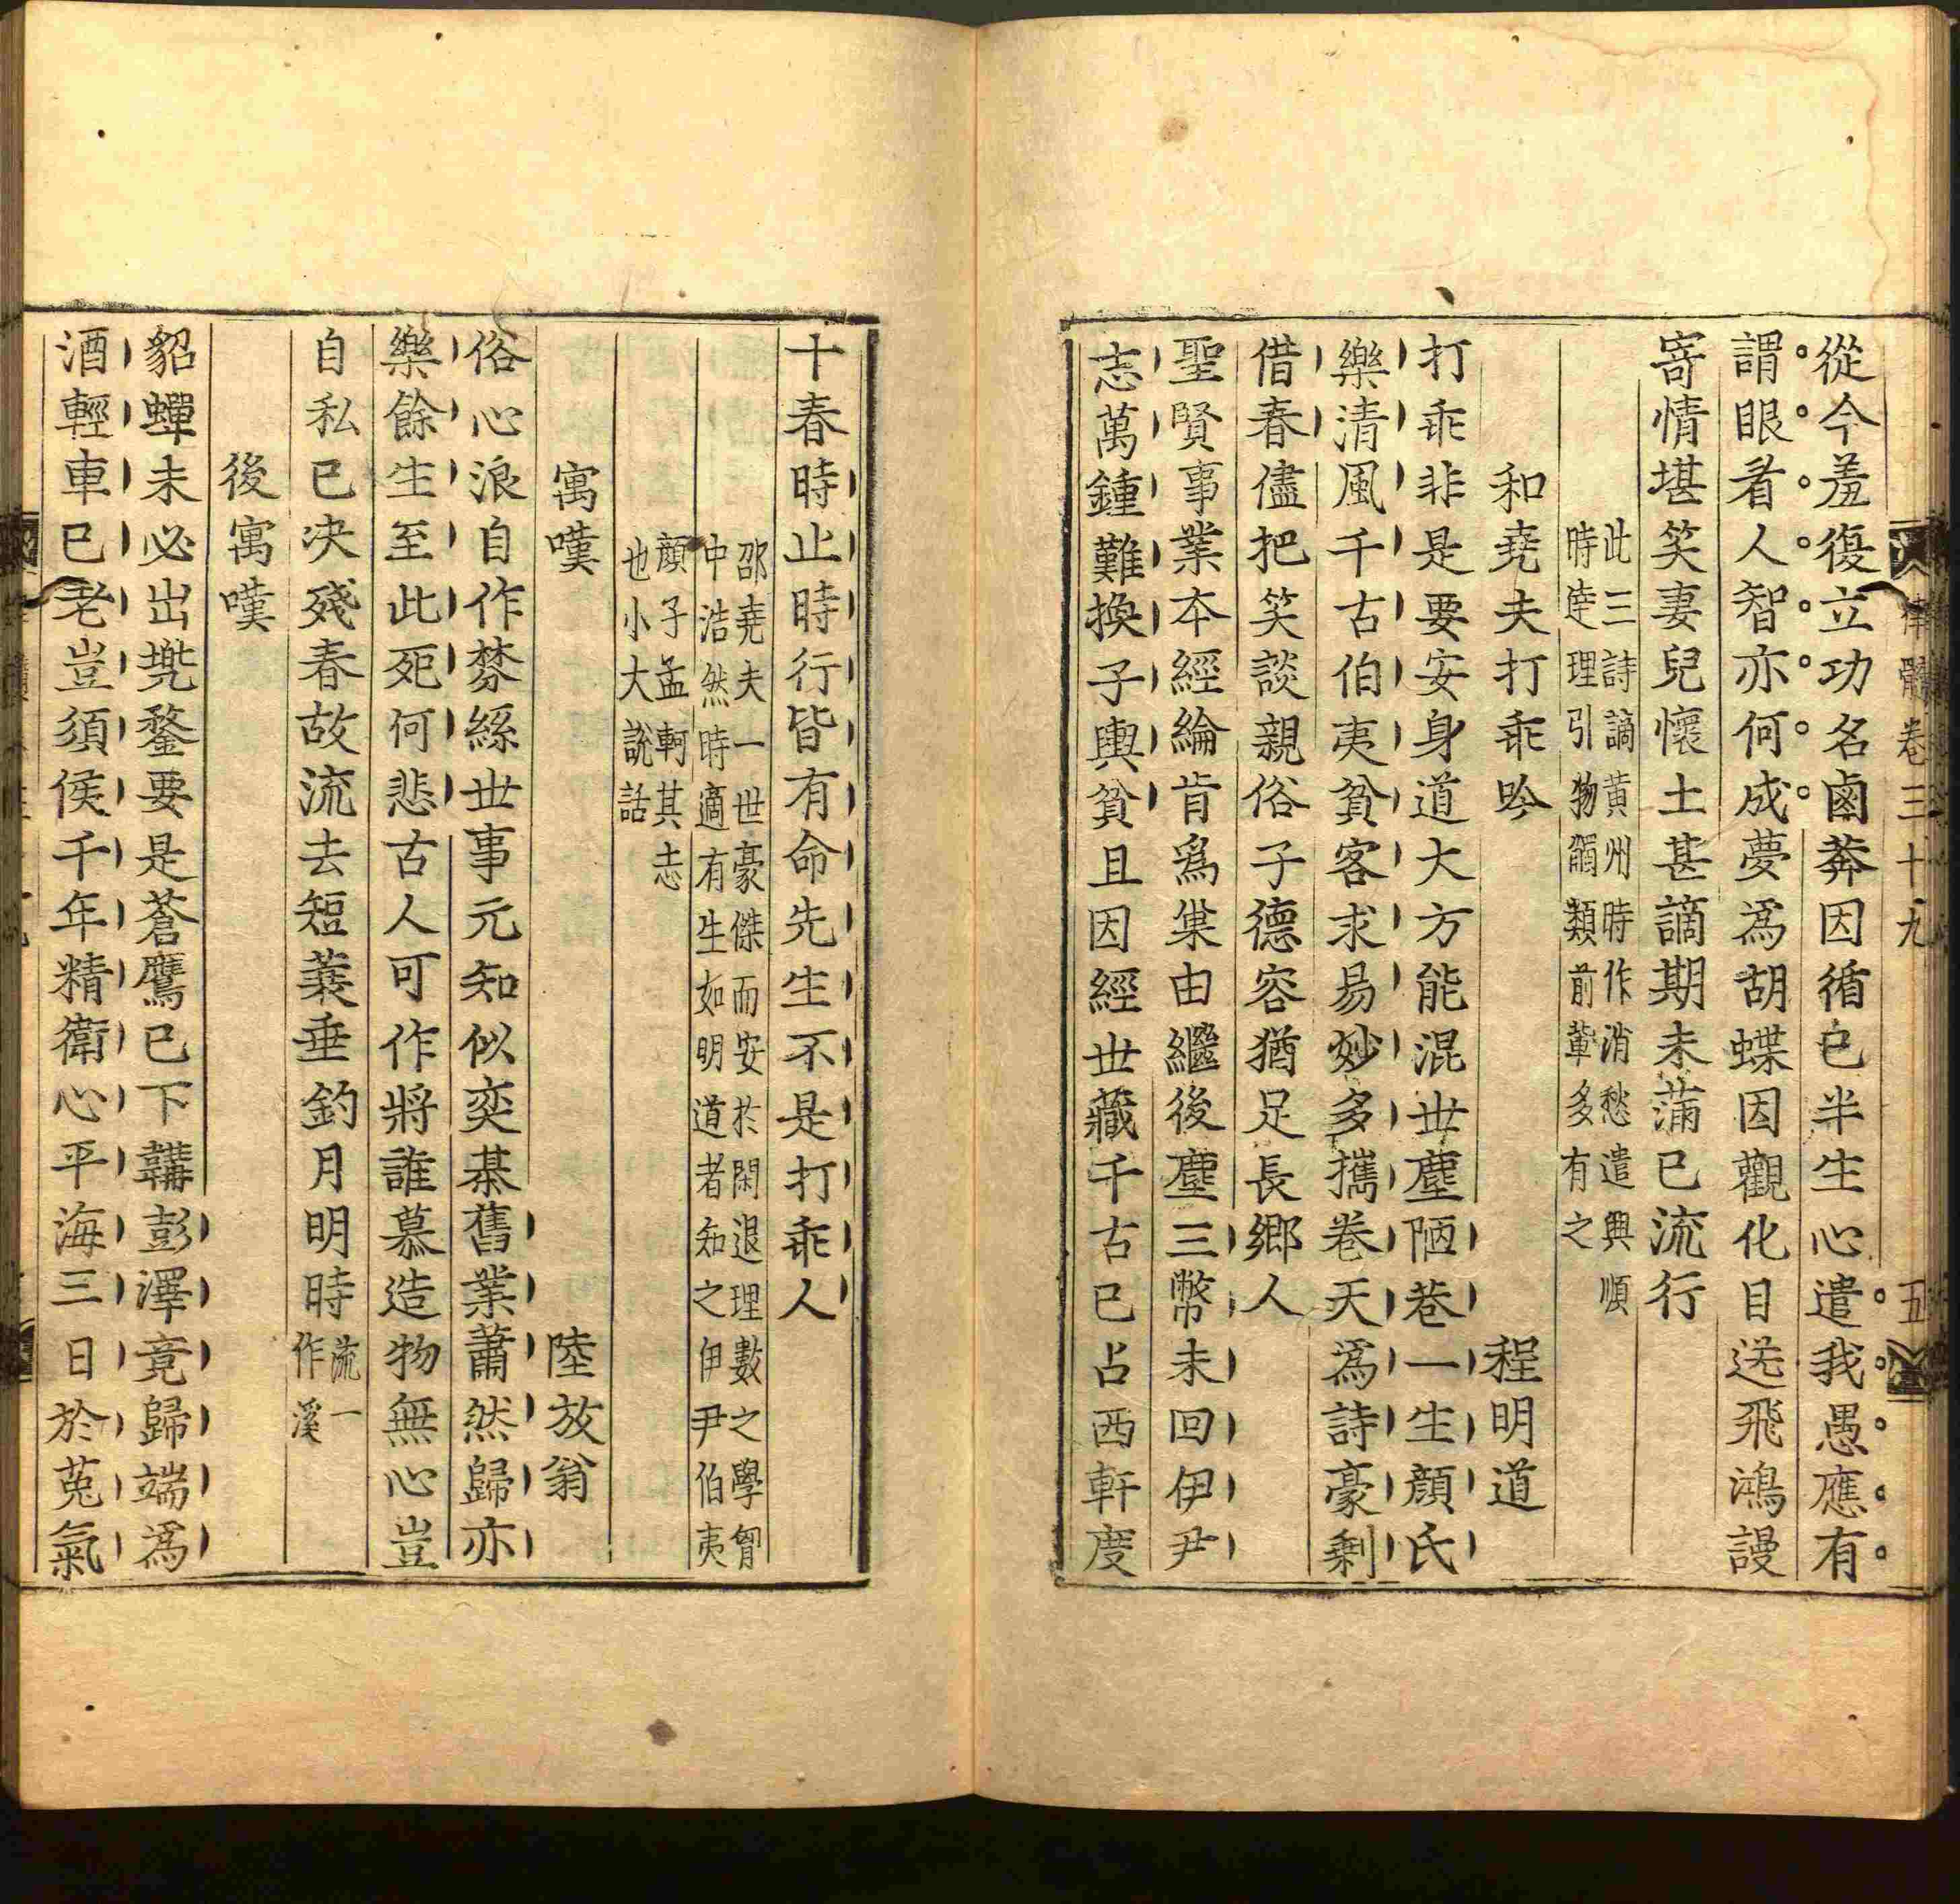 律髓卷三十九 五
從今羞復立功名鹵莽因循已半生心遣我愚應有
謂眼看人智亦何成夢爲胡蝶因觀化目送飛鴻謾
寄情堪笑妻兒懷土甚謫期未蒲已流行
此三詩謫黄州時作消愁遣興順
時達理引物觸類前軰多有之
和堯夫打乖吟 程明道
打乖非是要安身道大方能混世塵陋巷一生顔氏
樂清風千古伯夷貧客求易妙多攜卷天爲詩豪剩
借春儘把笑談親俗子德容猶足長鄉人
聖賢事業本經綸肯爲巢由繼後塵三幣未回伊尹
志萬鍾難換子輿貧且因經世藏千古已占西軒度
十春時止時行皆有命先生不是打乖人
邵堯夫一世豪傑而安於閑退理數之學胷
中浩然時適有生如明道者知之伊尹伯夷
顔子孟軻其志
也小大説話
寓嘆 陸放翁
俗心浪自作棼絲世事元知似奕棊舊業蕭然歸亦
樂餘生至此死何悲古人可作將誰慕造物無心豈
自私已決殘春故流去短蓑垂釣月明時
流一
作溪
後寓嘆
貂蟬未必出兠鍪要是蒼鷹已下鞲彭澤竟歸端爲
酒輕車已老豈須侯千年精衛心平海三日於菟氣